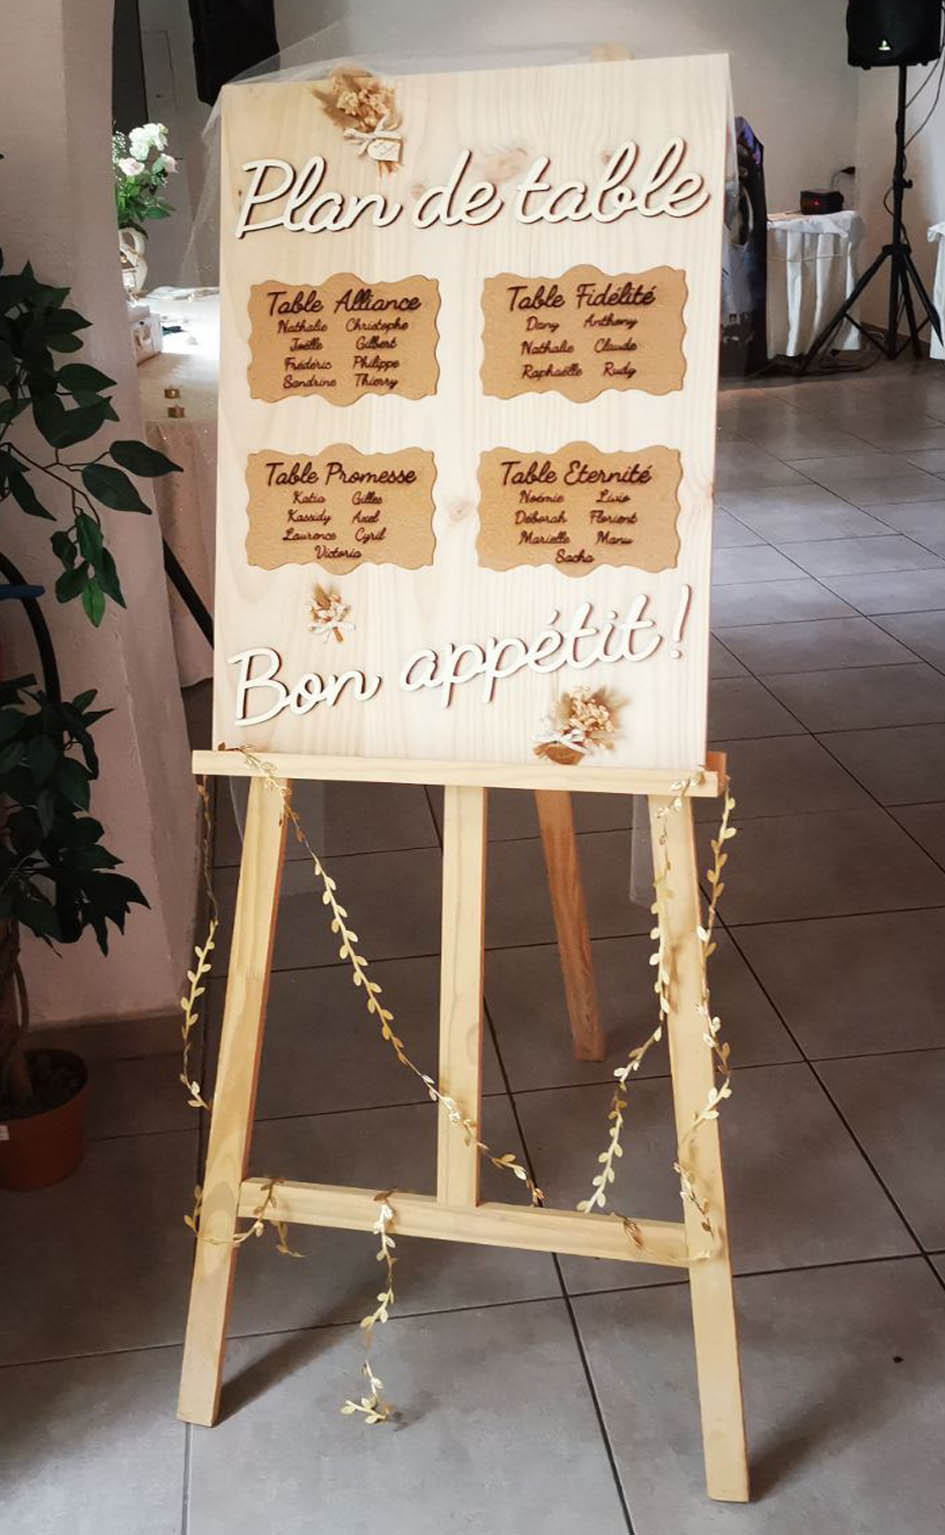 Plan de table
Table Alliance
Nathalie Christophe
Joëlle Gilbert
Frédéric Philippe
Sandrine Thierry
Table Fidélité
Dany Anthony
Nathalie Claude
Raphaëlle Rudy
Table Promesse
Katia Gilles
Kassidy Axel
Laurence Cyril
Victoria
Table Eternité
Noémie Livio
Déborah Florient
Marielle Manu
Sacha
Bon appétit!